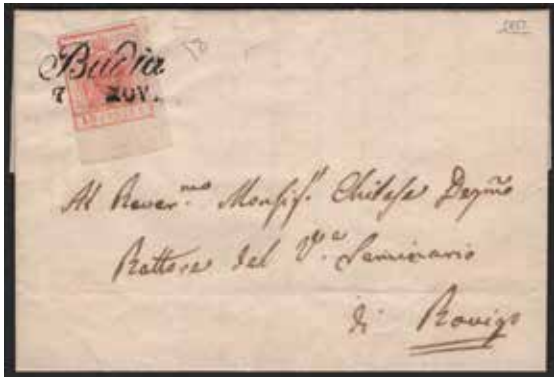 Badia
7 NOV.
Al Rever.mo Monsig.r Degmo
Rettore del V.e Seminario
di Rovigo